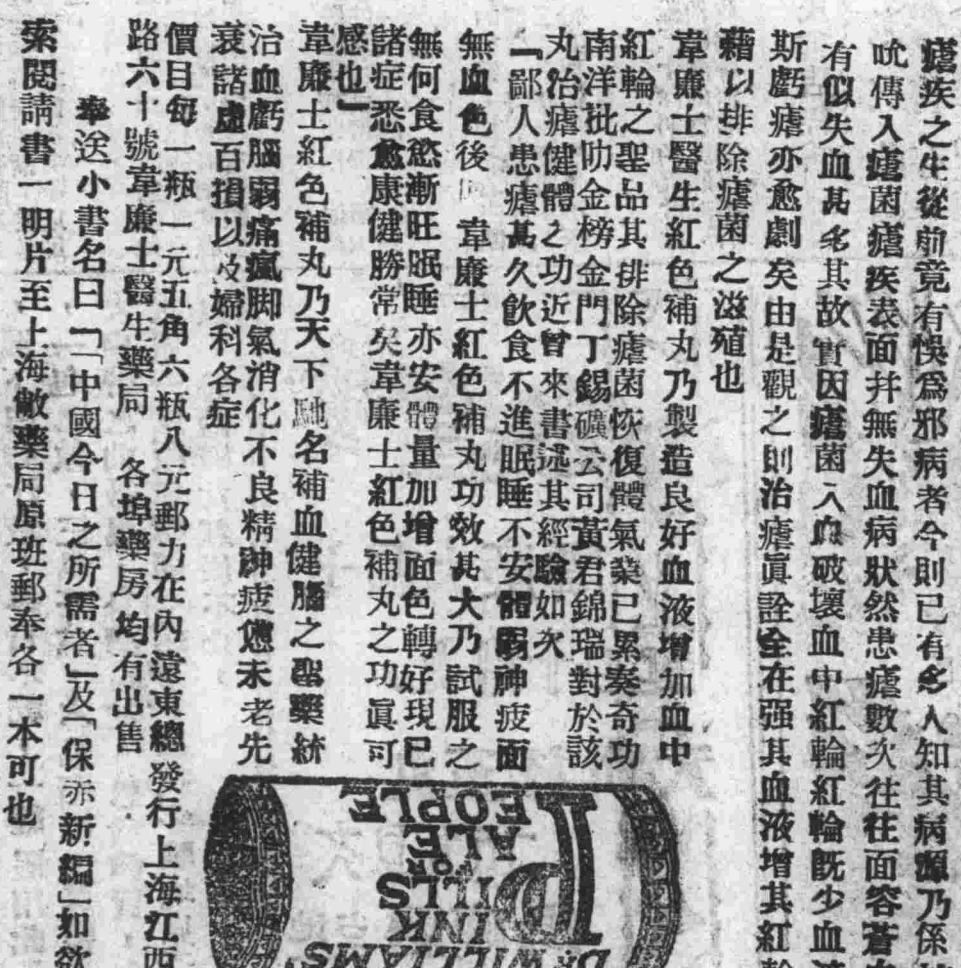 瘧疾之生從前竟有悞爲邪病者今則已有多人知其病源乃係
吮傳入瘧菌瘧疾表面幷無失血病狀然患瘧數次往往面容蒼
有似失血甚多其故實因瘧菌入血破壞血中紅輪紅輪旣少血
斯虧瘧亦愈劇矣由是觀之則治瘧眞詮全在强其血液增其紅
藉以排除瘧菌之滋殖也
韋廉士醫生紅色補丸乃製造良好血液增加血中
紅輪之聖品其排除瘧菌恢復體氣業已累奏奇功
南洋批叻金榜金門丁錫礦公司黃君錦瑞對於該
丸治瘧健體之功近曾來書述其經驗如次
「鄙人患瘧甚久飲食不進眠睡不安體弱神疲面
無血色後 韋廉士紅色補丸功效甚大乃試服之
無何食慾漸旺眠睡亦安體量加增面色轉好現已
諸症悉愈康健勝常矣韋廉士紅色補丸之功眞可
感也」
韋廉士紅色補丸乃天下馳名補血健腦之聖藥統
治血虧腦弱痛瘋脚氣消化不良精神疲憊未老先
衰諸虛百損以及婦科各症
價目每一瓶一元五角六瓶八元郵力在內遠東總發行上海江西
路六十號韋廉士醫生藥局 各埠藥房均有出售
奉送小書名曰「「中國今日之所需者」及「保赤新編」如欲
索閱請書一明片至上海敝藥局原班郵奉各一本可也
DR WILLIAMS'
PINK
PILLS
FOR
PALE
PEOPLE